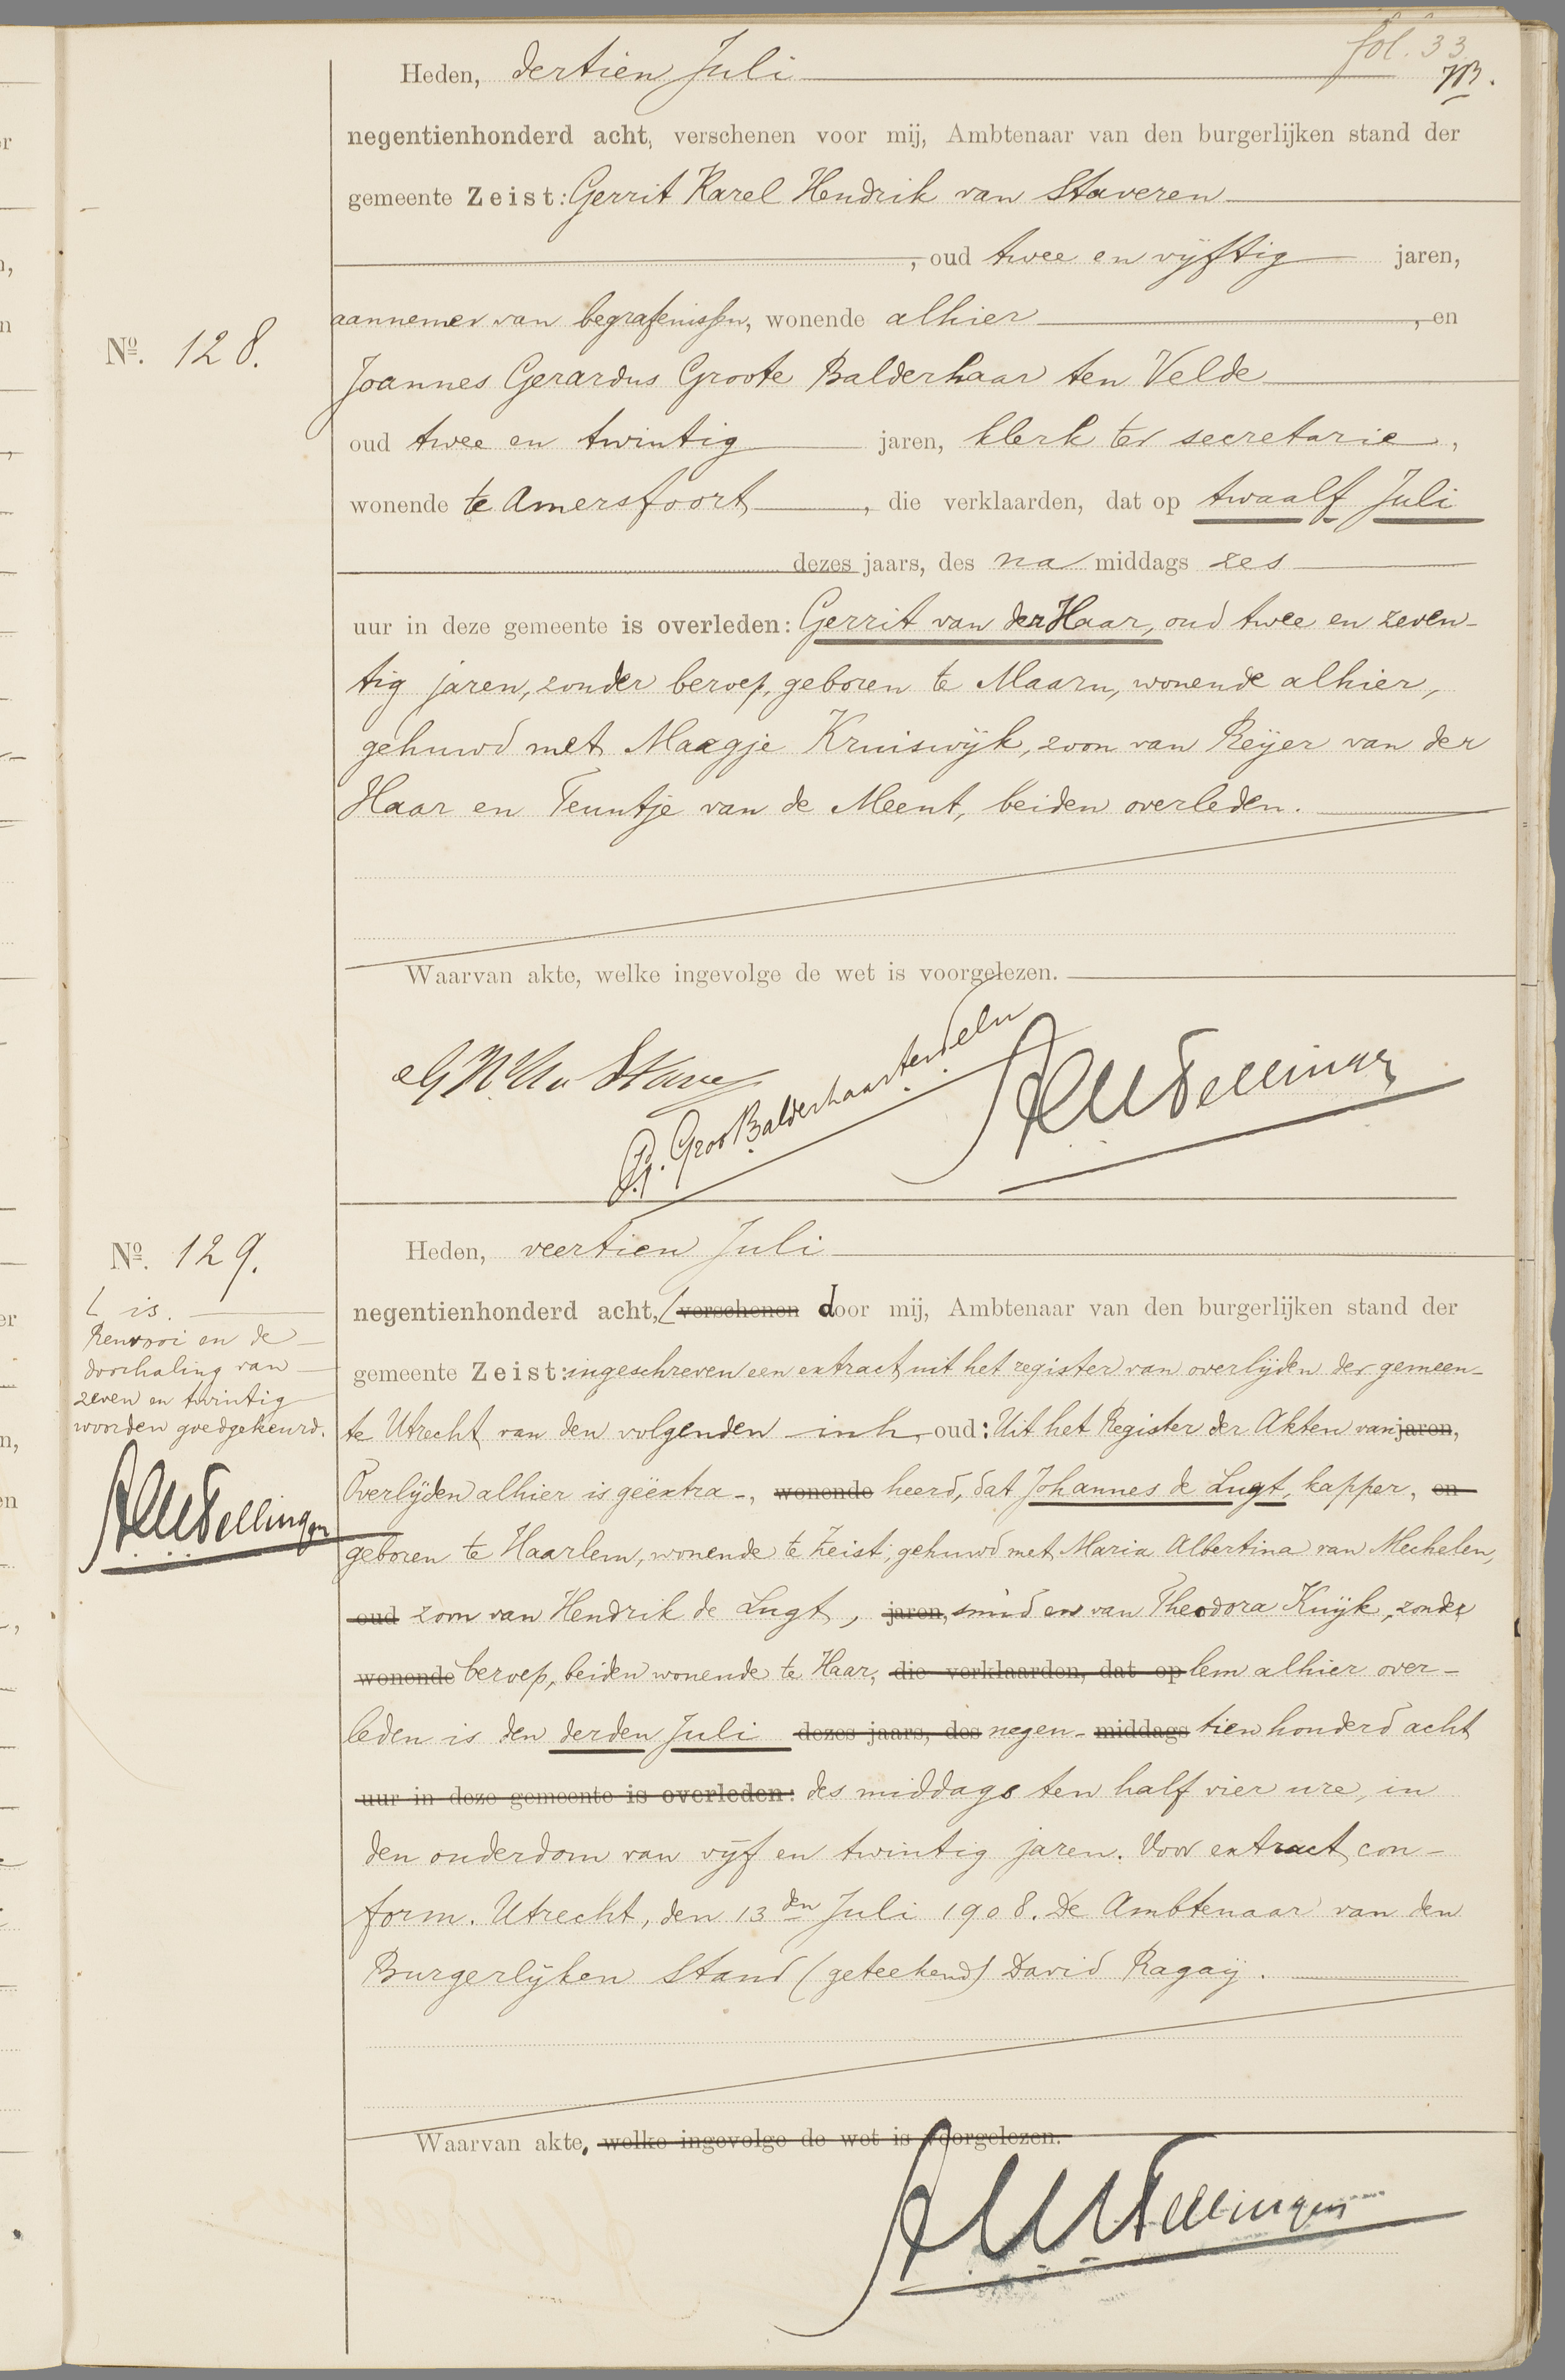 fol. 33
Heden, dertien Juli
negentienhonderd acht, verschenen voor mij, Ambtenaar van den burgerlijken stand der
gemeente Zeist: Gerrit Karel Hendrik van Staveren
, oud twee en vijftig jaren,
aannemer van begrafenissen, wonende alhier , en
No. 128.
Joannes Gerardus Groote Balderhaar ten Velde
oud twee en twintig jaren, klerk ter secretarie,
wonende te Amersfoort , die verklaarden, dat op twaalf Juli
dezes jaars, des na middags zes
uur in deze gemeente is overleden: Gerrit van der Haar, oud twee en zeven-
tig jaren, zonder beroep, geboren te Maarn, wonende alhier,
gehuwd met Maagje Kruiswijk, zoon van Reijer van der
Haar en Teuntje van de Meent, beiden overleden.
Waarvan akte, welke ingevolge de wet is voorgelezen.
No. 129.
Heden, veertien Juli
is.
Renvooi en de
doorhaling van
zeven en twintig
woorden goedgekeurd.
negentienhonderd acht, verschenen door mij, Ambtenaar van den burgerlijken stand der
gemeente Zeist: ingeschreven een extract uit het register van overlijden der gemeen-
te Utrecht van den volgenden inh, oud: Uit het Register der Akten van jaren,
Overlijden alhier is geëxtra-, wonende heerd, dat Johannes de Lugt, kapper, en
geboren te Haarlem, wonende te Zeist, gehuwd met Maria Albertina van Mechelen,
oud zoon van Hendrik de Lugt, jaren, smid en van Theodora Kuijk, zonder
wonende beroep, beiden wonende te Haar, die verklaarden, dat op lem alhier over-
leden is den derden Juli dezes jaars, des negen- middags tien honderd acht
uur in deze gemeente is overleden: des middags ten half vier ure, in
den ouderdom van vijf en twintig jaren. Voor extract con-
form. Utrecht, den 13den Juli 1908. De Ambtenaar van den
Burgerlijken Stand (geteekend) David Ragaij.
Waarvan akte, welke ingevolge de wet is voorgelezen.